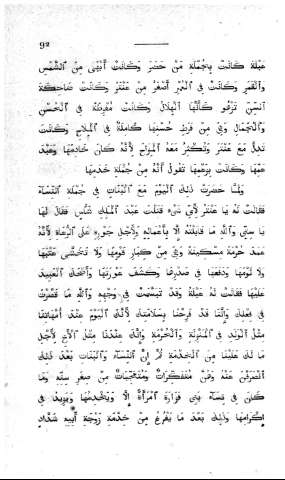 92
عبلة كانت بجملة من حضر وكانت أبهى من الشمس
والقمر وكانت في العمر أصغر من عنتر وكانت ضاحكة
السن تزهو كأنها الهلال وكانت مفرطة في الحسن
والجمال وفي من فرط حسنها كاملة في الملاح وكانت
تدل مع عنتر وتكثر معه المزاح لأنه كان خادمها وعبد
عمها وكانت بزعمها تقول أنه من جملة خدمها
ولما حضرت ذلك اليوم مع البنات في جملة النساء
فقالت له يا عنتر لأي شيء قتلت عبد الملك شاس فقال لها
يا ستي والله ما قتلته إلا بأعماله ولأجل جوره على الرعاة لأنه
عمد حرمة مسكينة وفي من كبار قومها ولا تختشى عليها
ولا لومها ودفعها في صدرها وكشف عورتها وأضحك العبيد
عليها فقالت له عبلة وقد تبسمت في وجهه والله ما قصرت
في فعلك وإننا قد فرحنا بسلامتك لأنك اليوم عند أمهاتنا
مثل الولد في المنزلة والحرمة وإنك عندنا مثل الأخ لأجل
ما لك علينا من الخدمة ثم إن النساء والبنات بعد ذلك
انصرفن عنه وهن متفكرات ومتعجبات من صغر سنه وما
كان في نساء بني قرارة امرأة إلا ويخدمها ويزيد في
إكرامها وذلك بعد ما يفرغ من خدمة زوجة أبيه شداد